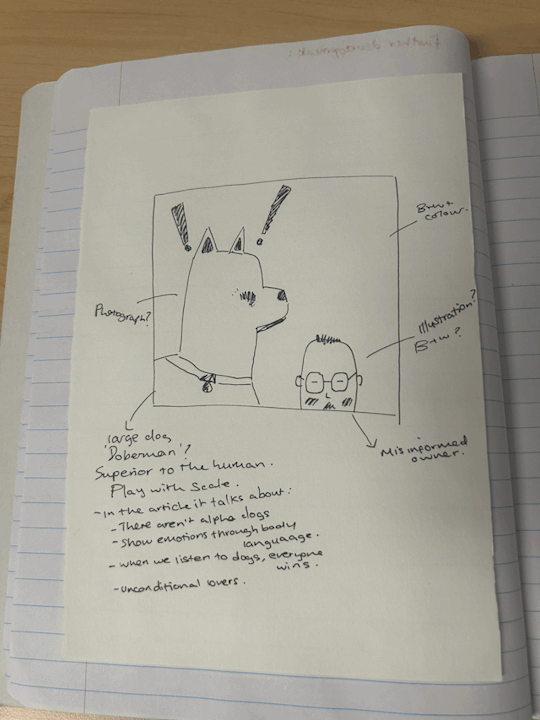 B+w+
colour.
Photograph?
Illustration?
B+w?
Misinformed
owner.
large dog
'Doberman'?
Superior to the human.
Play with scale.
-In the article it talks about:
-There aren't alpha dogs
-Show emotions through body
languaage.
-when we listen to dogs, everyone
wins.
-unconditional lovers.